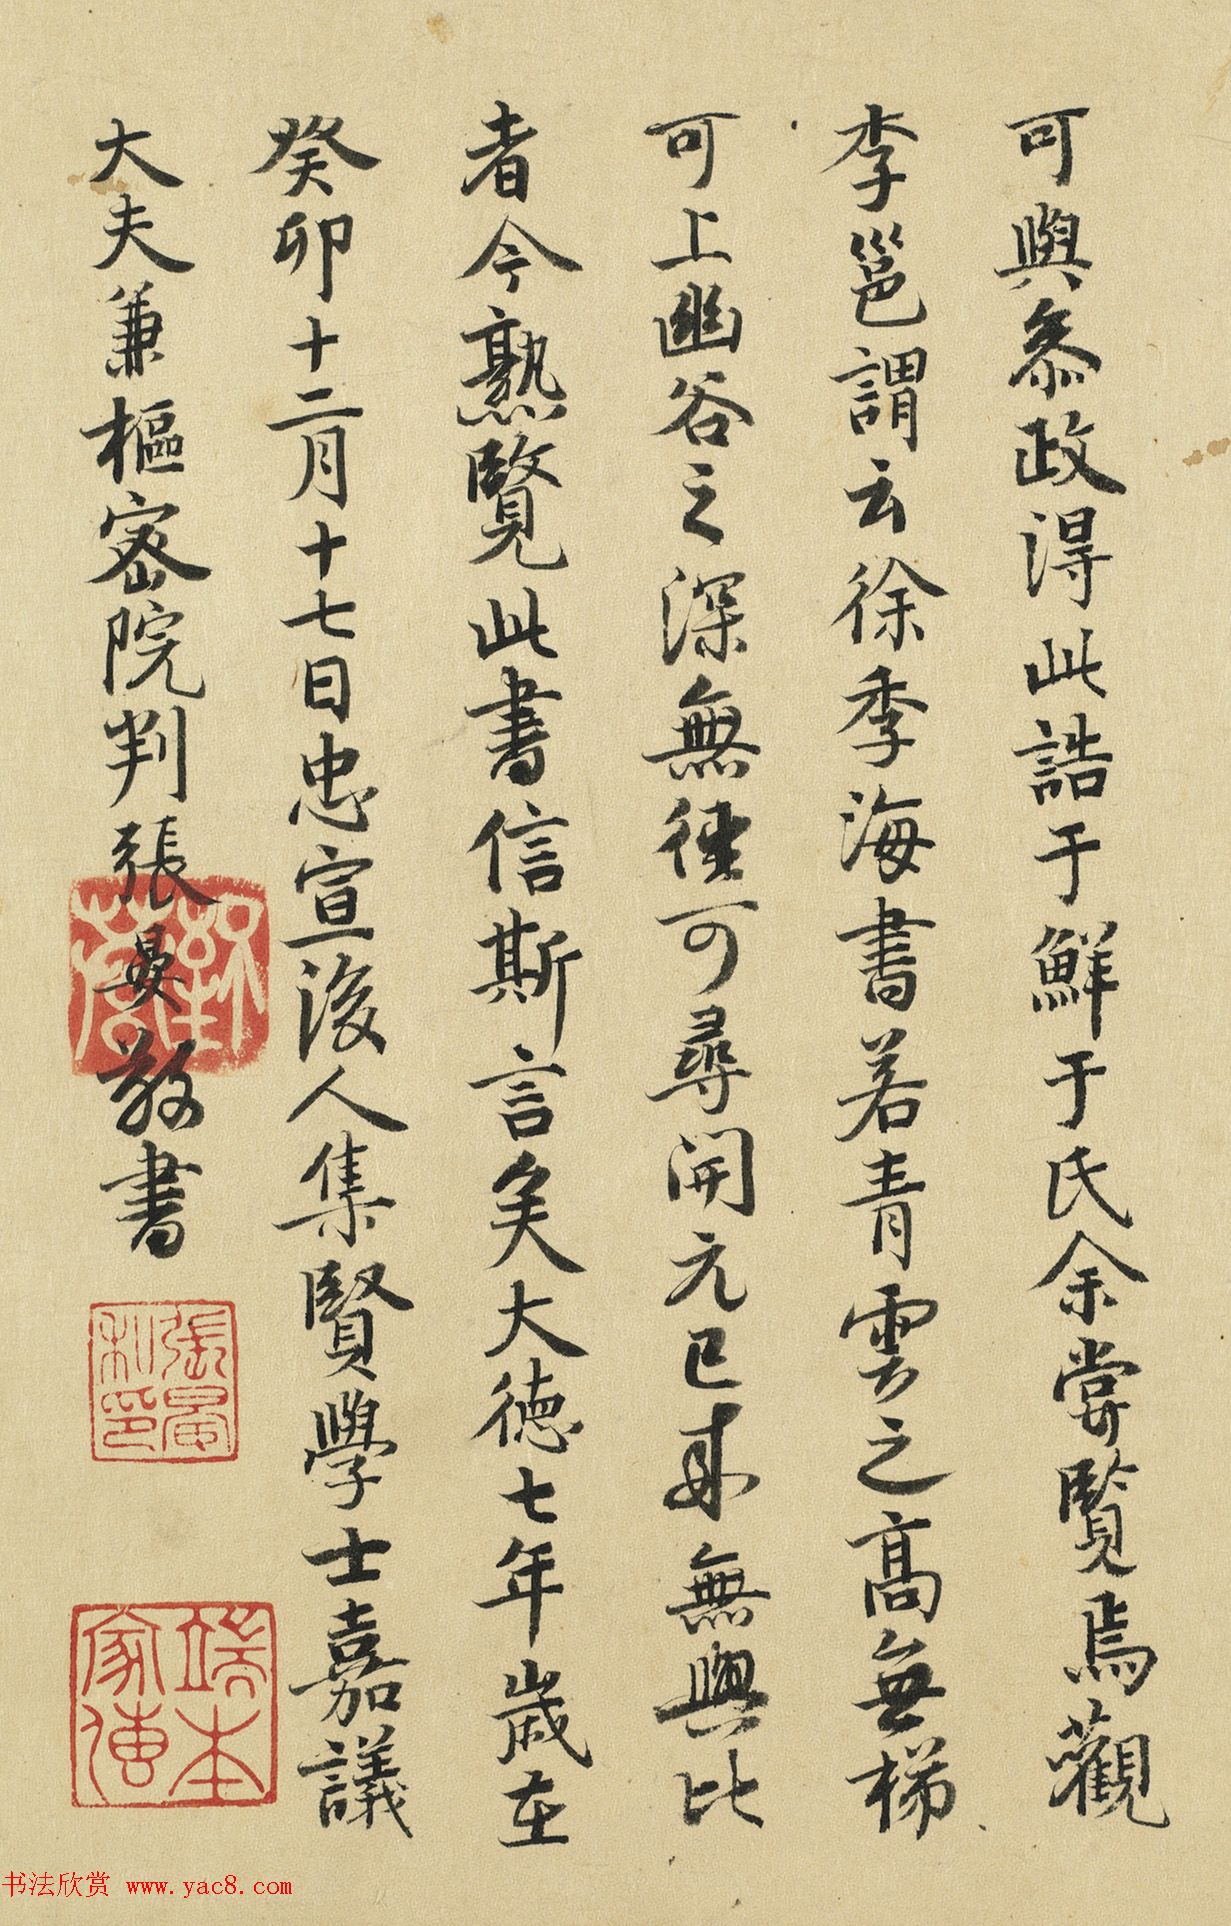 可與叅政得此誥于鮮于氏余嘗覽焉觀
李邕謂云徐季海書若青雲之高無梯
可上幽谷之深無徑可尋開元已来無與比
者今熟覽此書信斯言矣大德七年歲在
癸卯十二月十七日忠宣後人集賢學士嘉議
大夫兼樞密院判張晏敬書
張晏私印
端本家傳
书法欣赏 www.yac8.com